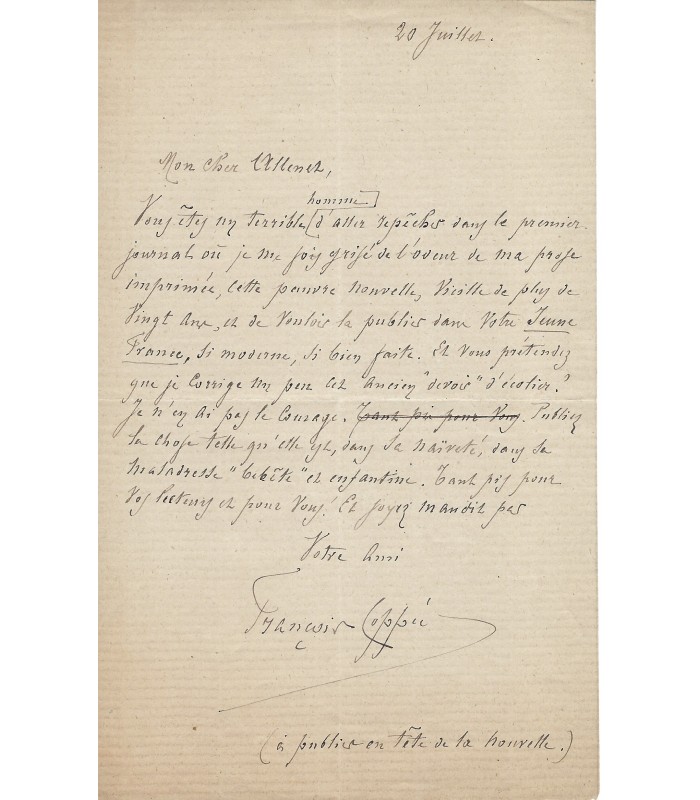 20 Juillet.
Mon cher Allenet,
homme
Vous êtes un terrible d'aller repêcher dans le premier
journal où je me sois grisé de l'odeur de ma prose
imprimée, cette pauvre nouvelle, vieille de plus de
vingt ans, et de vouloir la publier dans votre Jeune
France, si moderne, si bien faite. Et vous prétendez
que je corrige un peu cet ancien "devoir" d'écolier?
Je n'en ai pas le courage. Tant pis pour vous. Publiez
la chose telle qu'elle est, dans sa naïveté, dans sa
maladresse "bébête" et enfantine. Tant pis pour
vos lecteurs et pour vous! Et soyez maudit par
Votre ami
François Coppée
(à publier en tête de la nouvelle.)